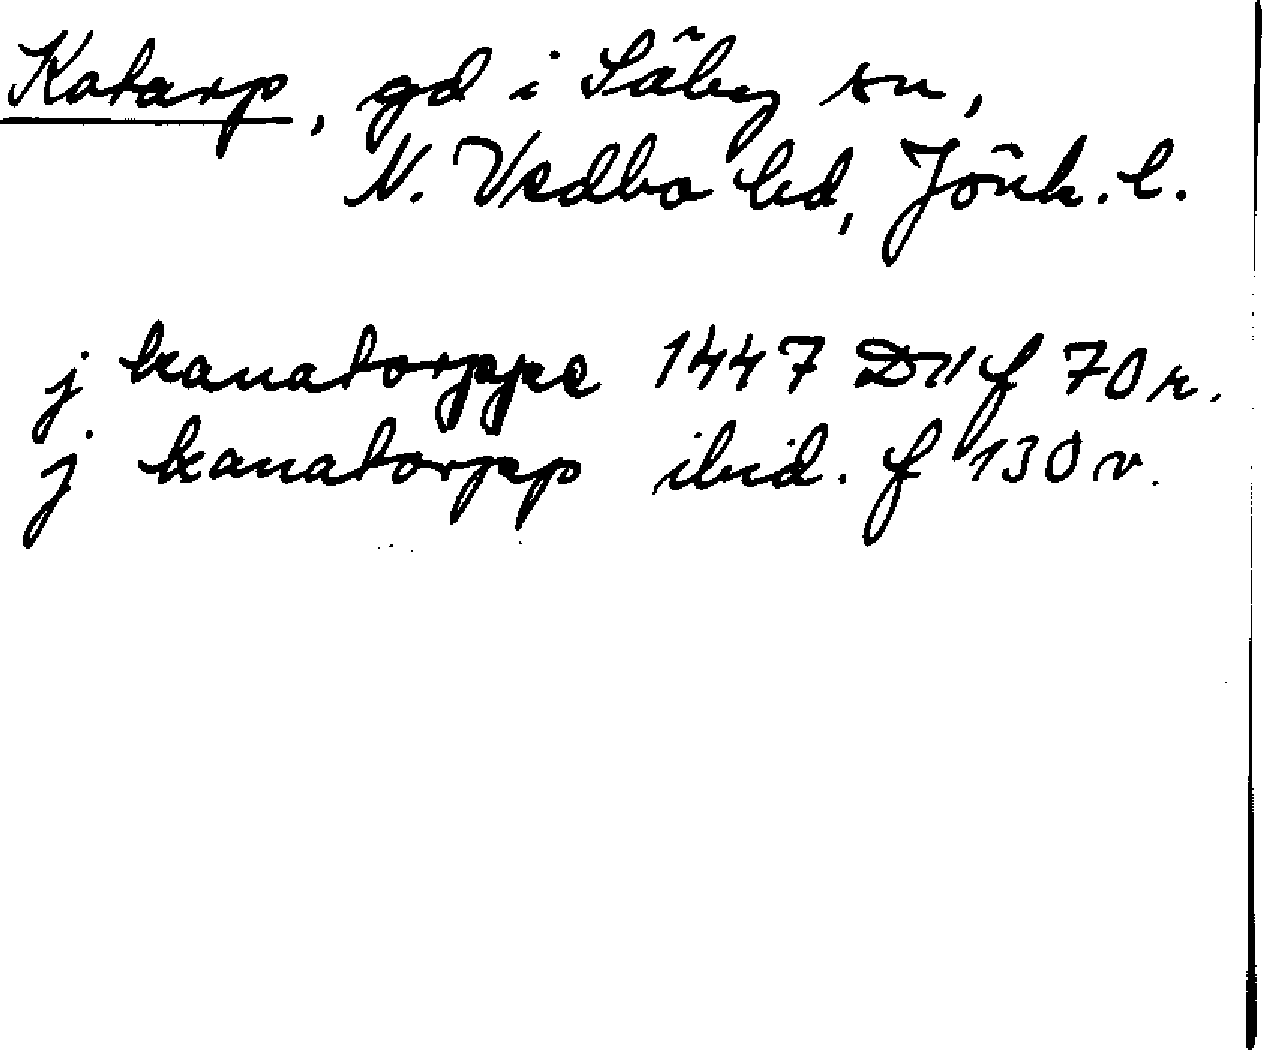 Kotarp, gd i Säby sn,
N. Vedbo hd, Jönk. l.
j kanatorppe 1447 D11 f 70 r.
j kanatorpp ibid. f 130 v.